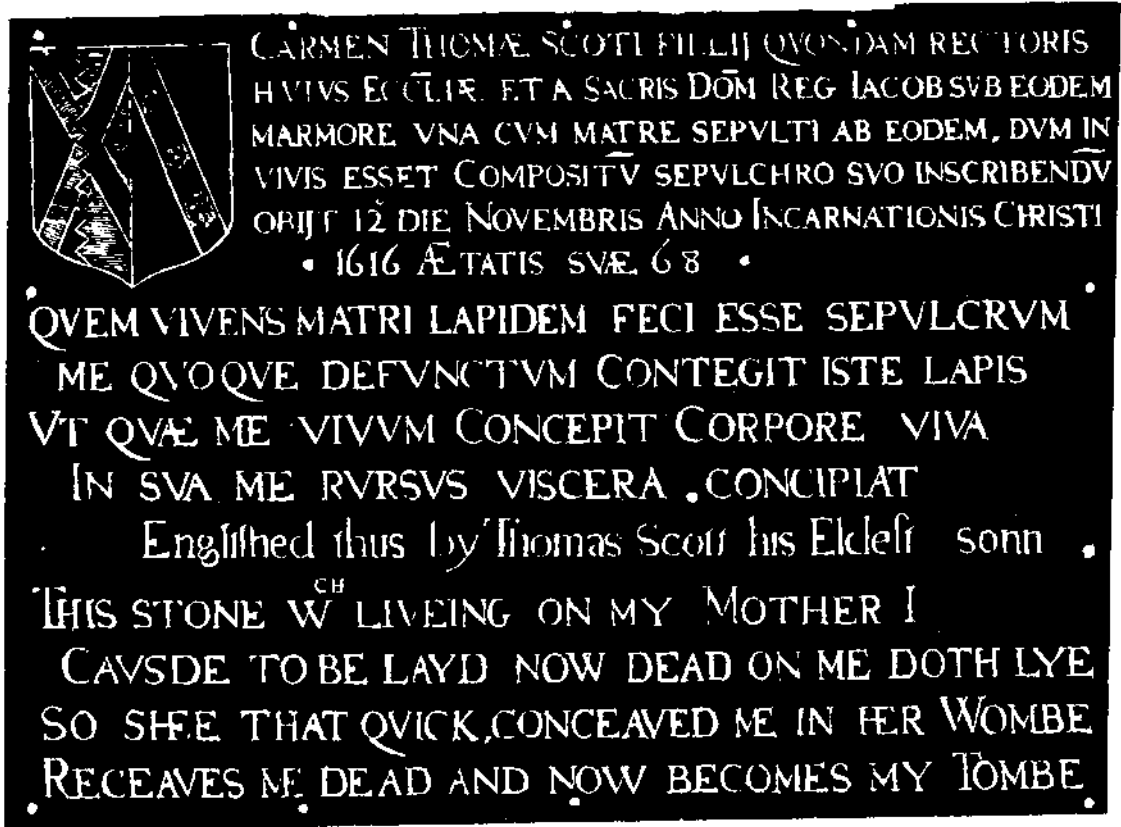 CARMEN THOMÆ SCOTI FILLIJ QVONDAM RECTORIS
HVIVS ECCL̄IÆ ET A SACRIS DOM̄ REG IACOB SVB EODEM
MARMORE VNA CVM MATRE SEPVLTI AB EODEM, DVM IN
VIVIS ESSET COMPOSITV̄ SEPVLCHRO SVO INSCRIBENDV̄
OBIJT 12 DIE NOVEMBRIS ANNO INCARNATIONIS CHRISTI
• 1616 ÆTATIS SVÆ 68 •
QVEM VIVENS MATRI LAPIDEM FECI ESSE SEPVLCRVM
ME QVOQVE DEFVNCTVM CONTEGIT ISTE LAPIS
VT QVÆ ME VIVVM CONCEPIT CORPORE VIVA
IN SVA ME RVRSVS VISCERA . CONCIPIAT
Engliſhed thus by Thomas Scott his Eldeſt sonn
THIS STONE Wᶜᴴ LIVEING ON MY MOTHER I
CAVSDE TO BE LAYD NOW DEAD ON ME DOTH LYE
SO SHEE THAT QVICK, CONCEAVED ME IN HER WOMBE
RECEAVES ME DEAD AND NOW BECOMES MY TOMBE